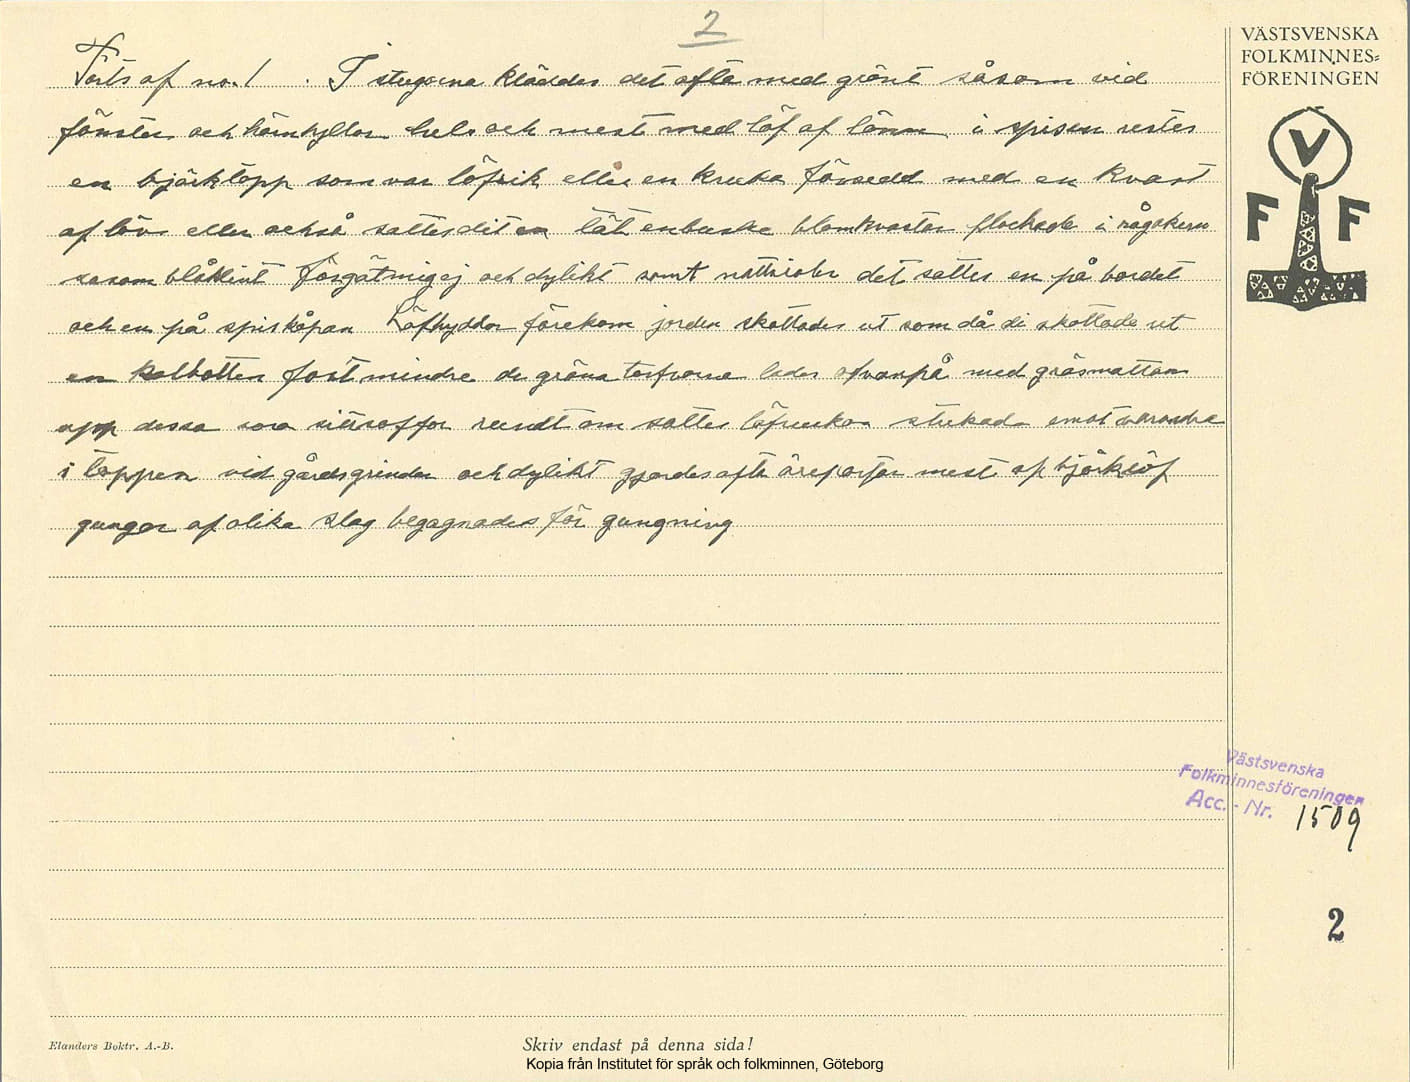 2
VÄSTSVENSKA
FOLKMINNES=
FÖRENINGEN
V
F F
Forts af no. 1 . I stugorna kläddes det ofta med grönt såsom vid
fönster och hörnhyllor hels och mest med löf af lönn i spisen restes
en björktopp som var löfrik eller en kruka försedd med en kvast
af löv eller också sattes dit en tät enbuske blomkvastar plockade i rågåkern
sasom blåklint förgätmigej och dylikt samt nattvioler det sattes en på bordet
och en på spiskåpan Löfhyddor förekom jorden skottades ut som då di skottade ut
en kolbotten fast mindre de gröna torfvorna lades ofvanpå med gräsmattan
upp dessa som sittsoffor rundt om sattes löfruskor stukade emot varandra
i toppen vid gårdsgrinden och dylikt gjordes ofta äreportar mest af björklöf
gungor af olika slag begagnades för gungning
Västsvenska
Folkminnesföreningen
Acc. - Nr. 1509
2
Elanders Boktr. A.-B.
Skriv endast på denna sida!
Kopia från Institutet för språk och folkminnen, Göteborg